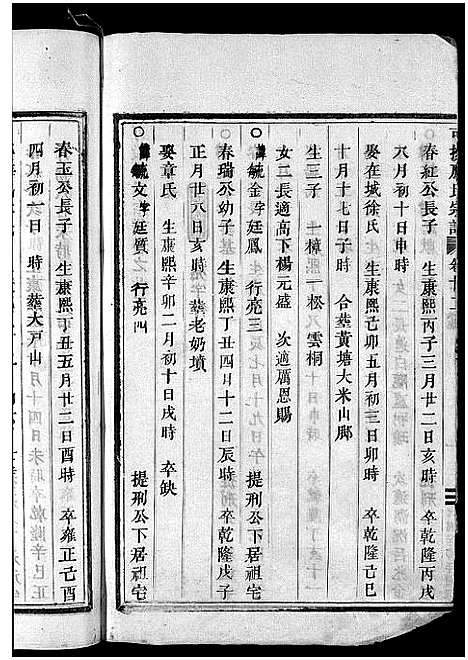 春紅公長子 生康熙丙子三月廿二日亥時 卒乾隆丙戌
六月初十日申時
娶在城徐氏 生康熙己卯五月初三日卯時 卒乾隆己巳
十月十七日子時 合葬黃塘大米山腳
生三子 一樟熙 一松 雲桐
女二長適高下楊元盛 次適厲恩賜
諱毓金字廷鳳 行亮三 提刑公下居祖宅
春瑞公幼子 生康熙丁丑四月十二日辰時 卒乾隆戊子
正月廿六日亥時 葬老奶墳
娶章氏 生康熙辛卯二月初十日戌時 卒缺
諱毓文字廷質 行亮四 提刑公下居祖宅
春玉公長子 生康熙丁丑五月廿二日酉時 卒雍正己酉
四月初六日 時 葬大戶山